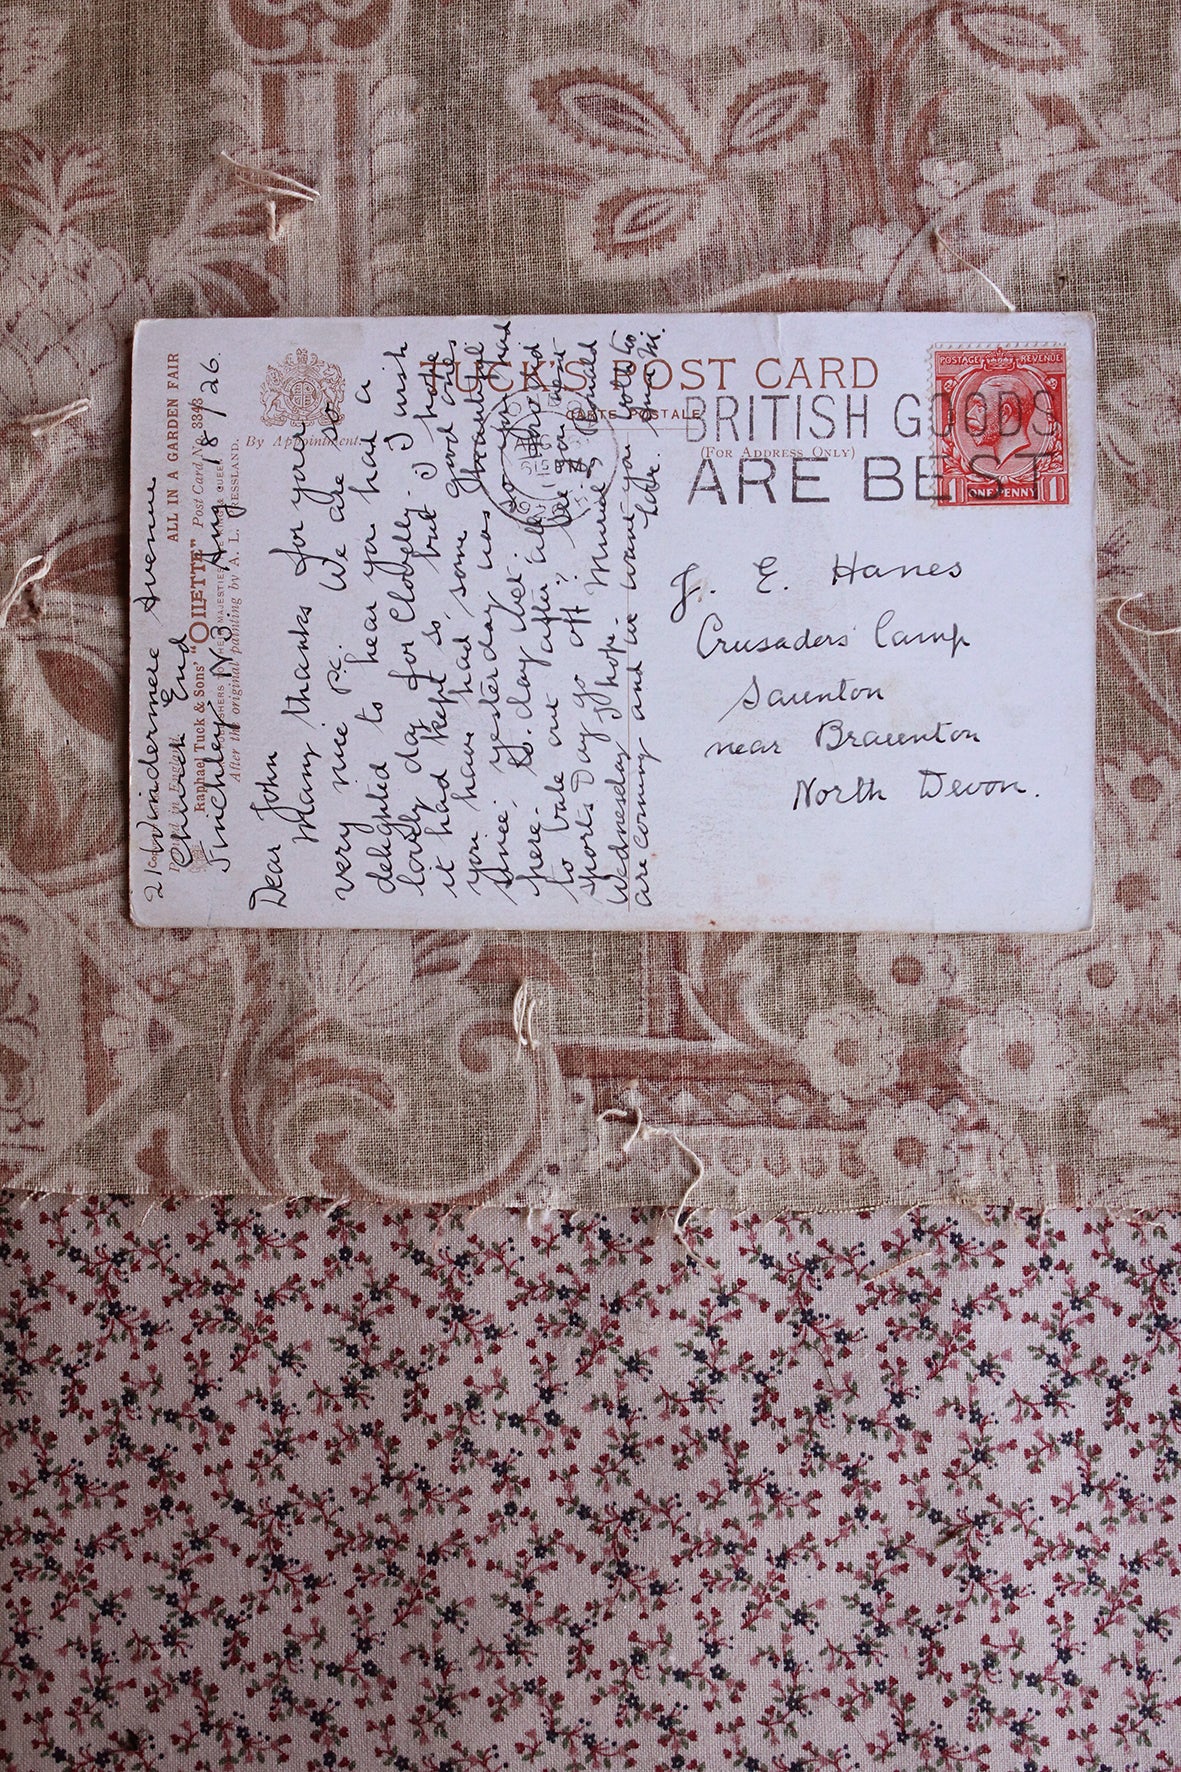 TUCK'S POST CARD
CARTE POSTALE
(FOR ADDRESS ONLY)
By Appointment.
BRITISH GOODS
ARE BEST
POSTAGE REVENUE
1 ONE PENNY 1
J. E. Hanes
Crusaders' Camp
Saunton
near Braunton
North Devon.
ALL IN A GARDEN FAIR
Raphael Tuck & Sons' "OILETTE" Post Card No. 3343
After the original painting by A. L. PRESSLAND.
21 Windermere Avenue
Church End
Finchley N3 Aug 18/26.
Dear John
Many thanks for your
very nice P.C. We are so
delighted to hear you had a
lovely day for Clovelly. I wish
it had kept so, but I hope
you have had some good ones
since, yesterday was beautiful
here. To-day wet. so you had
to bale out after all
Sports Day go off? See you
Wednesday I hope. Muriel & Donald
are coming and we want you both to